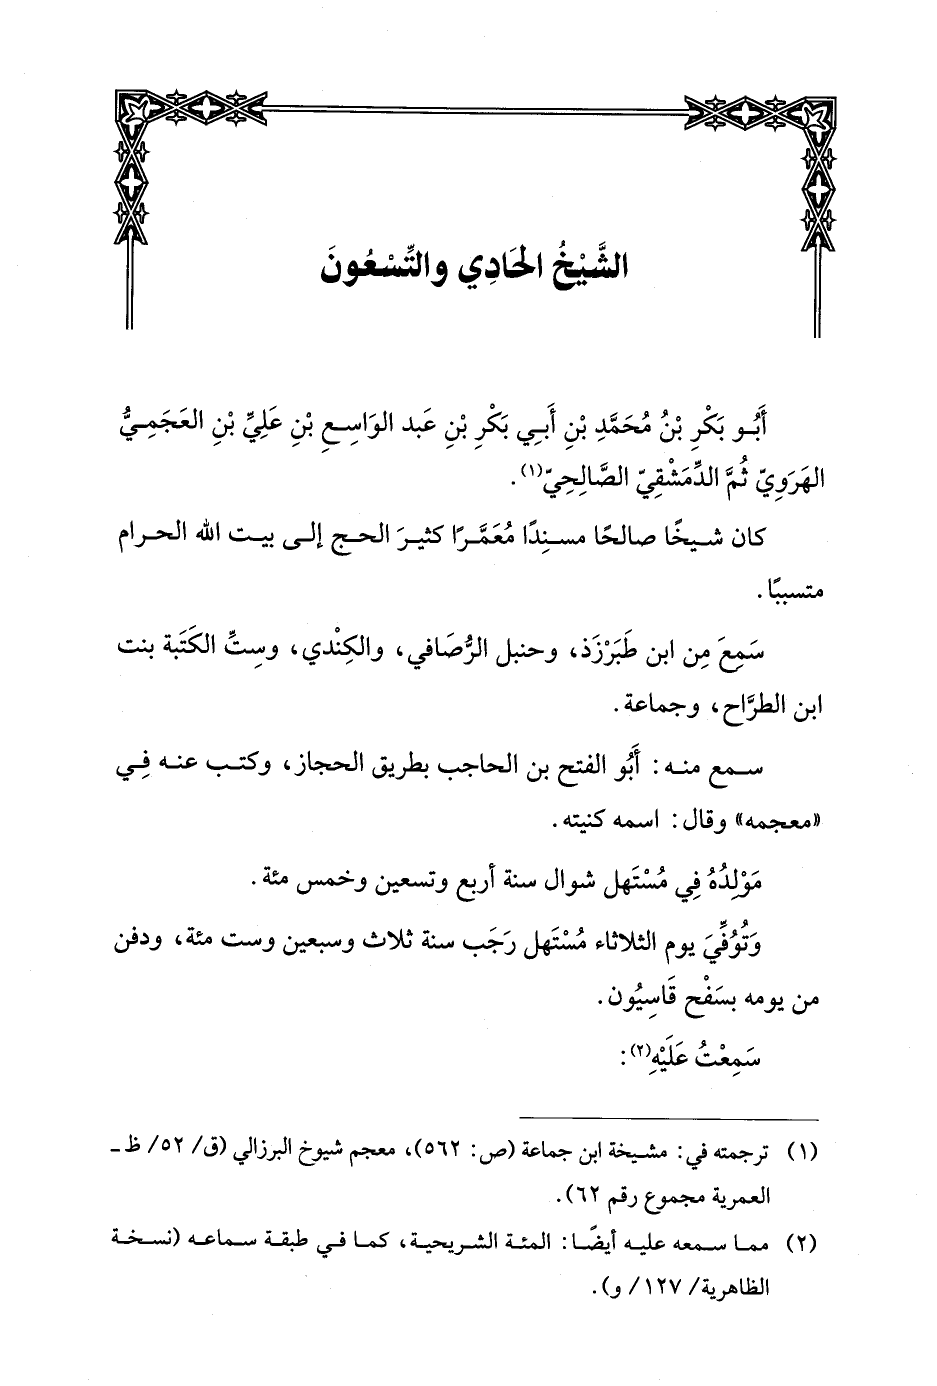 الشَّيْخُ الحَادِي والتِّسْعُونَ
أَبُو بَكْرِ بْنُ مُحَمَّدِ بْنِ أَبِي بَكْرِ بْنِ عَبد الوَاسِعِ بْنِ عَلِيِّ بْنِ العَجَمِيُّ
الهَرَوِيّ ثُمَّ الدِّمَشْقِيّ الصَّالِحِيّ(١).
كان شيخًا صالحًا مسنِدًا مُعَمَّرًا كثيرَ الحج إلى بيت الله الحرام
متسببًا.
سَمِعَ مِن ابن طَبَرْزَذ، وحنبل الرُّصَافي، والكِنْدي، وسِتِّ الكَتَبة بنت
ابن الطرَّاح، وجماعة.
سمع منه: أَبُو الفتح بن الحاجب بطريق الحجاز، وكتب عنه فِي
«معجمه» وقال: اسمه كنيته.
مَوْلِدُهُ فِي مُسْتَهل شوال سنة أربع وتسعين وخمس مئة.
وَتُوُفِّيَ يوم الثلاثاء مُسْتَهل رَجَب سنة ثلاث وسبعين وست مئة، ودفن
من يومه بسَفْح قَاسِيُون.
سَمِعْتُ عَلَيْهِ(٢):
(١) ترجمته في: مشيخة ابن جماعة (ص: ٥٦٢)، معجم شيوخ البرزالي (ق/ ٥٢/ ظ ـ
العمرية مجموع رقم ٦٢).
(٢) مما سمعه عليه أيضًا: المئة الشريحية، كما في طبقة سماعه (نسخة
الظاهرية/ ١٢٧/ و).